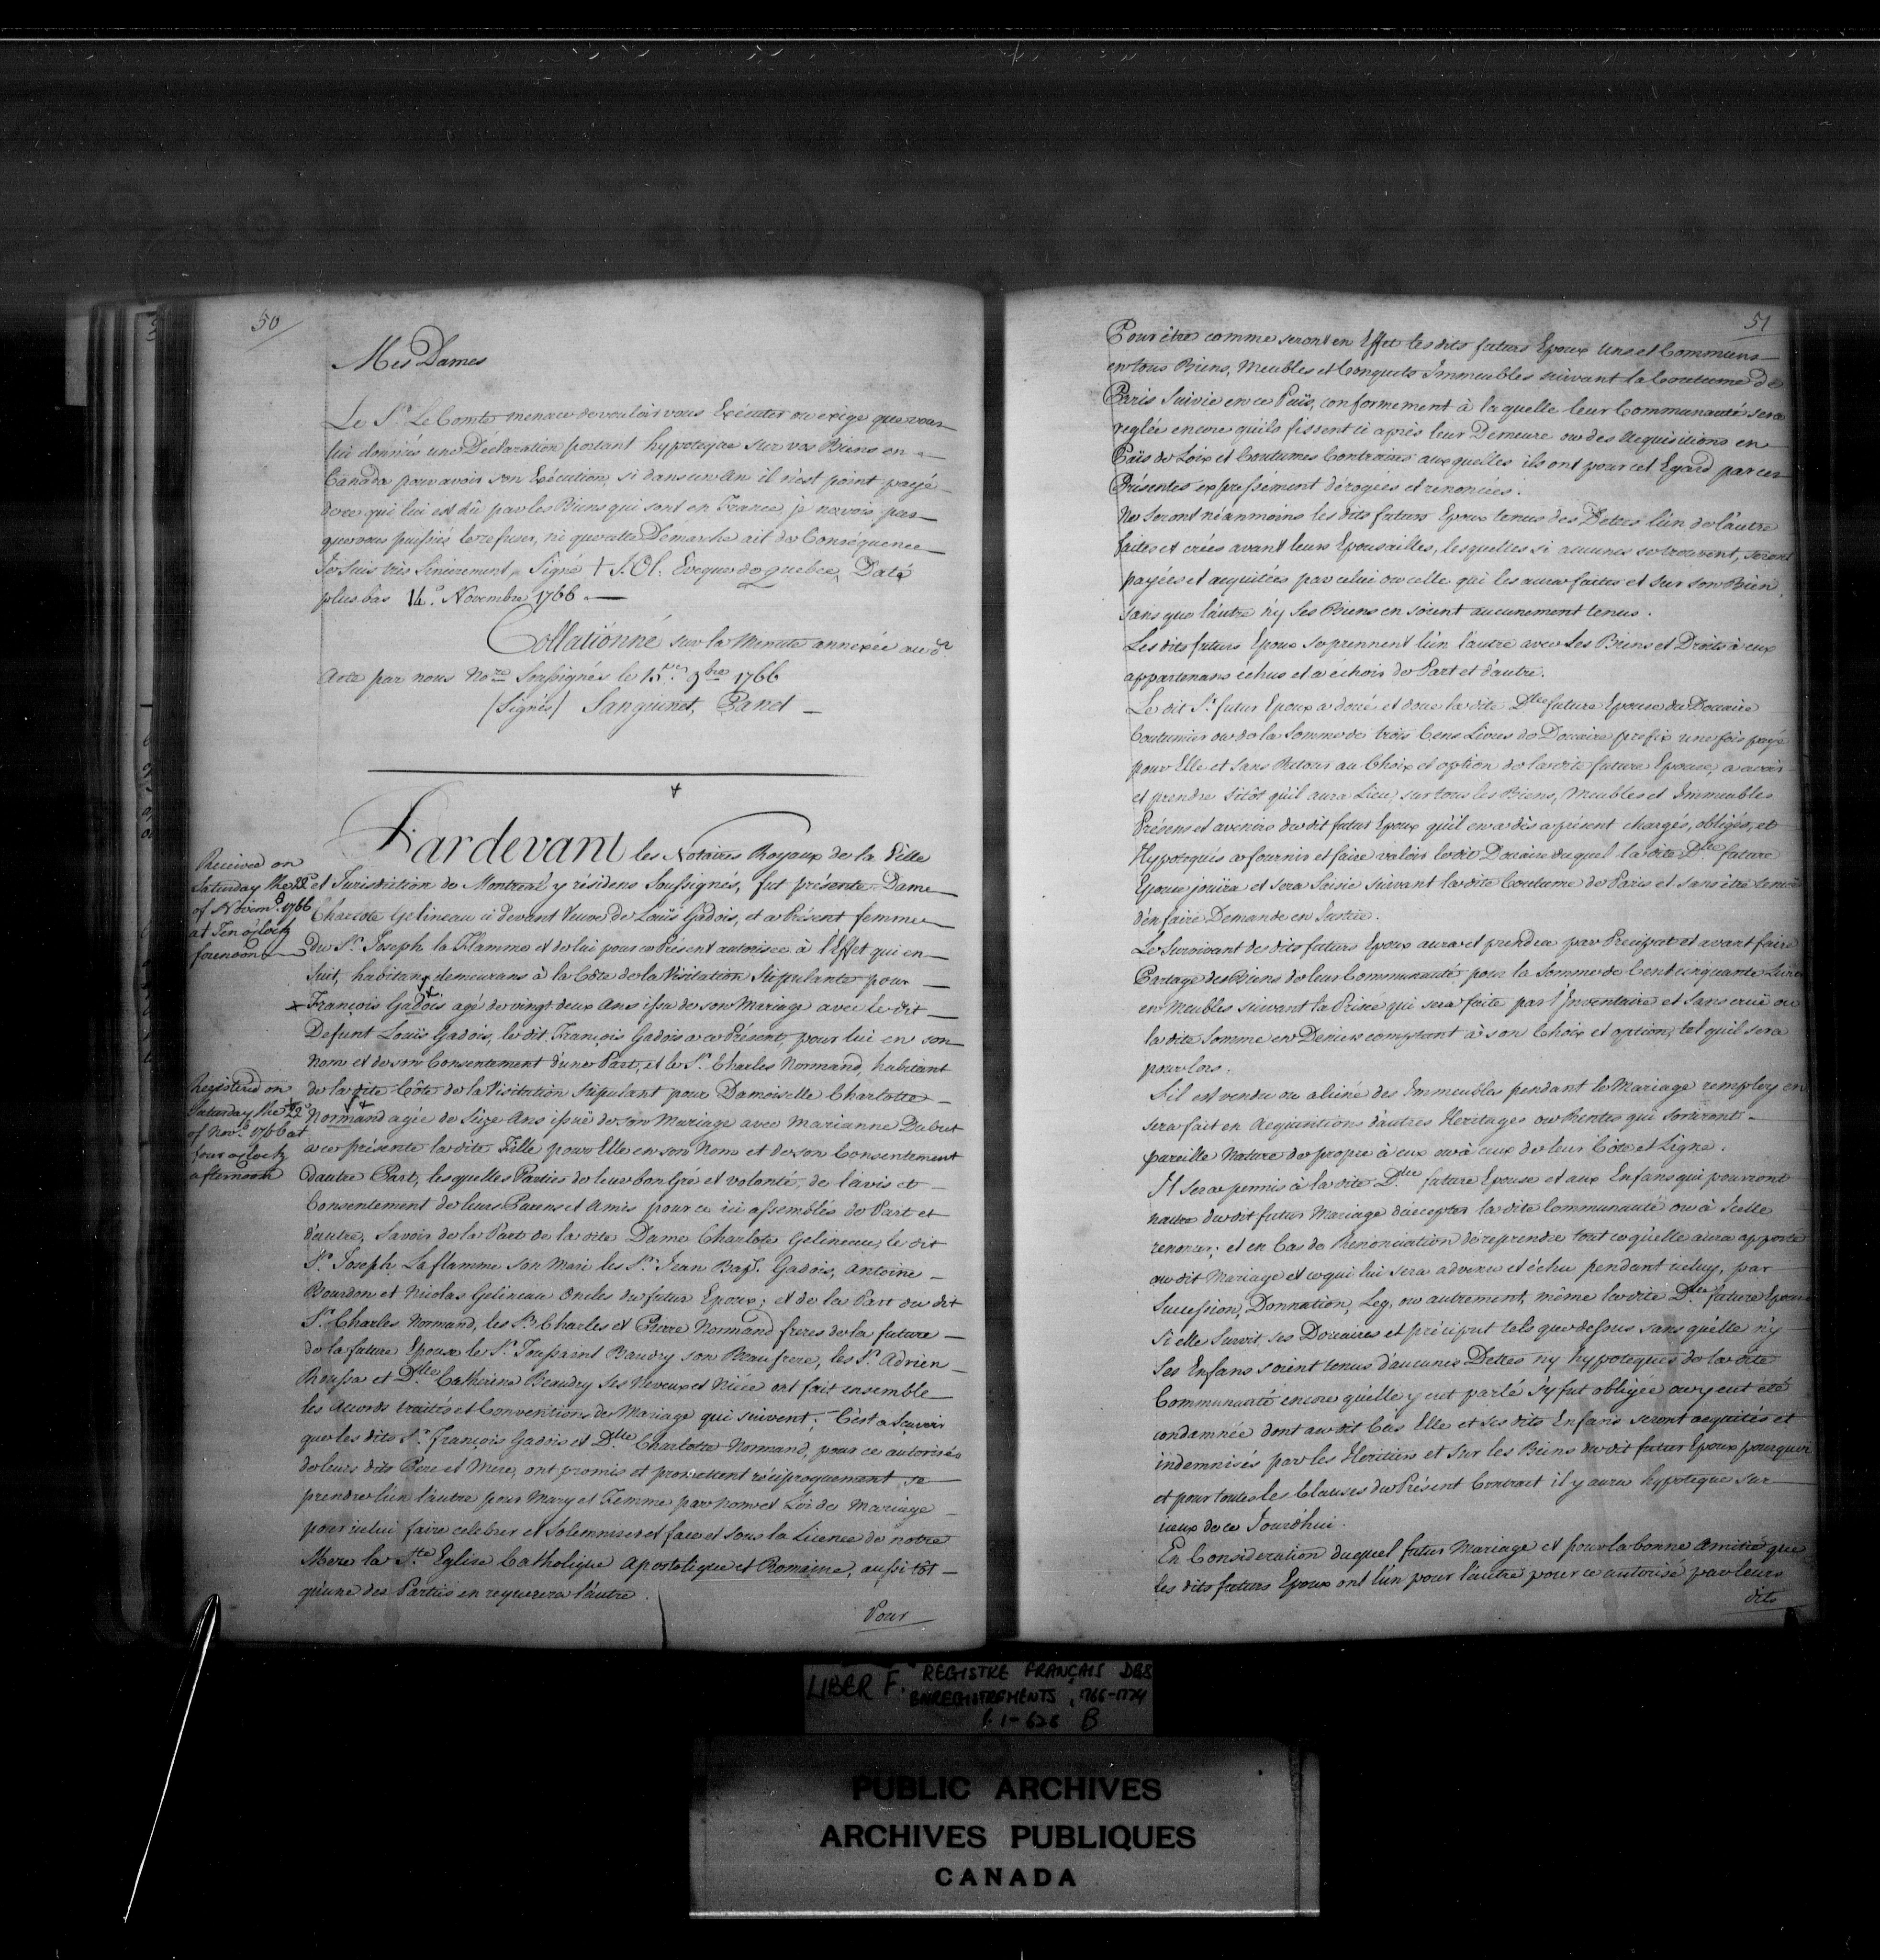 50
Mes Dames
Le Sr. Le Comte menace de vouloir vous Exécuter ou exige que vous
lui donniés une Déclaration portant hypoteque sur vos Biens en
Canada pour avoir son Exécution, si dans un An il n'est point payé
de ce qui lui est dû par les Biens qui sont en France, je ne vois pas
que vous puissiés le refuser, ni que cette Demarche ait de Conséquence
Je suis très Sincerement, Signé + J. Ol. Eveque de Quebec, Daté
plus bas 14e. Novembre 1766.
Collationné sur la Minute annexée au d.
Acte par nous Nores Soussignés le 15 9bre 1766
(Signés) Sanguinet, Panet
Received on
Saturday the 22d
of Novemr. 1766
at Ten o'clock
forenoon
Registered on
Saturday the 22d
of Novr. 1766 at
four o'clock
afternoon
Pardevant les Notaires Royaux de la Ville
et Jurisdiction de Montreal y résidens Soussignés, fut présente Dame
Charlote Gelineau ci devant Veuve de Louis Gadois, et a Présent femme
du Sr. Joseph la Flamme et de lui pour ce Présent autorisée à l'Effet qui en
suit, habitans demeurans à la Côte de la Visitation Stipulante pour
François Gadois agé de vingt deux Ans issu de son Mariage avec le dit
Defunt Louis Gadois, le dit François Gadois a ce Présent, pour lui en son
Nom et de son Consentement d'une Part, et le Sr. Charles Normand, habitant
de la dite Côte de la Visitation Stipulant pour Damoiselle Charlotte
Normand agée de Seize Ans issüe de son Mariage avec Marianne Dubut
a ce présente la dite Fille pour Elle en son Nom et de son Consentement
d'autre Part, lesquelles Parties de leur bon Gré et volonté, de l'avis et
Consentement de leurs Parens et Amis pour ce ici assemblés de Part et
d'autre, Savoir de la Part de la dite Dame Charlote Gelineau, le dit
Sr. Joseph Laflamme son Mari les Srs. Jean Bapt. Gadois, Antoine
Bourdon et Nicolas Gelineau Oncles du futur Epoux; et de la Part du dit
Sr. Charles Normand, les Srs. Charles et Pierre Normand freres de la future
de la future Epouse le Sr. Toussaint Baudry son Beaufrere, les Sr. Adrien
et Dlle. Catherine Beaudry ses Neveux et Niéce ont fait ensemble
les Accords traités et Conventions de Mariage qui suivent; C'est a Scavoir
que les dits Sr. François Gadois et Dlle. Charlotte Normand, pour ce autorisés
de leurs dits Pere et Mere, ont promis et promettent réciproquement se
prendre l'ún l'autre pour Mary et Femme par nom et Loi de Mariage
pour icelui faire celebrer et Solemniser et face et sous la Licence de notre
Mere la Ste. Eglise Catholique Apostolique et Romaine, aussi tôt
qu'une des Parties en requerera l'autre.
Pour
51
Pour être comme seront en Effet les dits futurs Epoux Uns et Communs
en tous Biens, Meubles et Conquets Immeubles suivant la Coutume de
Paris Suivie en ce Païs, conformement à laquelle leur Communauté sera
reglée encore qu'ils fissent ci après leur Demeure ou des Acquisitions en
Païs de Loix et Coutumes Contraires auxquelles ils ont pour cet Egard par ces
Présentes expressément dérogées et renoncées.
Ne Seront néanmoins les dits futurs Epoux tenus des Dettes l'ún de l'autre
faites et crées avant leurs Epousailles, lesquelles si aucunes se trouvent, seront
payées et acquitées par celui ou celle qui les aura faites et sur son Bien,
sans que l'autre n'y ses Biens en soient aucunement tenus.
Les dits futurs Epoux se prennent l'ún l'autre avec les Biens et Droits à eux
appartenans échus et a échoir de Part et d'autre.
Le dit Sr. futur Epoux a doué et doue la dite Dlle future Epouse du Douaire
Coutumier ou de la Somme de trois Cens Livres de Douaire prefix une fois payé
pour Elle et sans Retour au Choix et option de la dite future Epouse, a avoir
et prendre sitôt qu'il aura Lieu, sur tous les Biens, Meubles et Immeubles
Présens et avenirs du dit futur Epoux qu'il en a dès a présent chargés, obligés, et
Hypotequés a fournir et faire valoir le dit Douaire duquel la dite Dlle. future
Epouse joüira et sera Saisie suivant la dite Coutume de Paris et sans être tenüe
d'en faire Demande en Justice.
Le Survivant des dits futurs Epoux aura et prendra par Preciput et avant faire
Partage des Biens de leur Communauté pour la Somme de Cent cinquante Livres
en Meubles suivant la Prisée qui sera faite par l'Inventaire et sans cruë ou
la dite Somme en Deniers comptant à son Choix et option, tel qu'il sera
pour lors.
S'il est vendu ou aliené des Immeubles pendant le Mariage remploy en
sera fait en Acquisitions d'autres Heritages ou Rentes qui Sortiront
pareille Nature de propre à eux ou à ceux de leur Côté et Ligne.
Il sera permis à la dite Dlle. future Epouse et aux Enfans qui pourront
naitre du dit futur Mariage d'accepter la dite Communauté ou à Icelle
renoncer; et en Cas de Renonciation de reprendre tout ce qu'elle aura apporté
au dit Mariage et ce qui lui sera advenu et échu pendant iceluy, par
Succession, Donnation, Leg, ou autrement, même la dite Dlle. future Epouse
si elle Survit ses Douaires et préciput tels que dessus sans qu'elle n'y
ses Enfans soient tenus d'aucunes Dettes ny hypoteques de la dite
Communauté encore qu'elle y eut parlé s'y fut obligée ou y eut eté
condamnée dont au dit Cas Elle et ses dits Enfans seront acquités et
indemnisés par les Heritiers et sur les Biens du dit futur Epoux pourquoi
et pour toutes les Clauses du Présent Contrat il y aura hypoteque sur
iceux de ce Jourd'hui.
En Consideration duquel futur Mariage et pour la bonne Amitié que
les dits futurs Epoux ont l'ún pour l'autre pour ce autorisé par leurs
dits
LIBER F. REGISTRE FRANÇAIS DES
ENREGISTREMENTS, 1766-1774
f. 1-626 B
PUBLIC ARCHIVES
ARCHIVES PUBLIQUES
CANADA